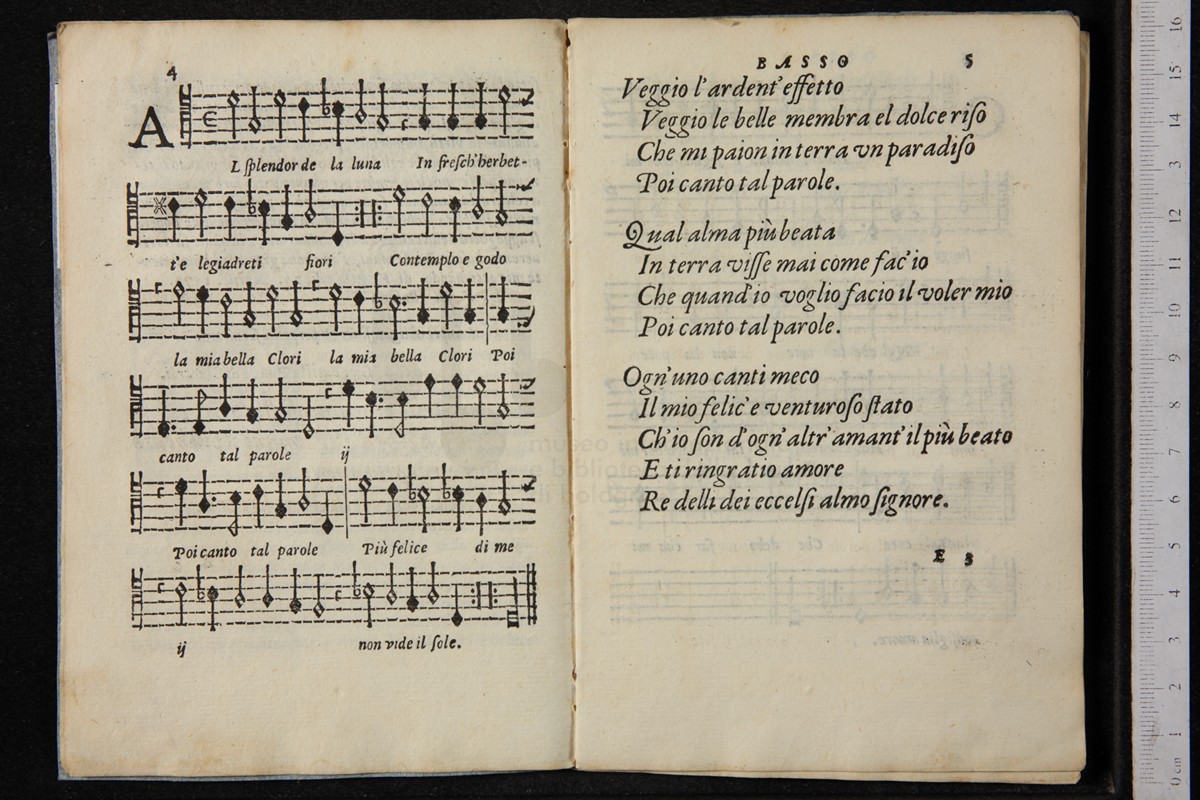 4
AL ſplendor de la luna In freſch'herbet-
t'e legiadreti fiori Contemplo e godo
la mia bella Clori la mia bella Clori Poi
canto tal parole ij
Poi canto tal parole Più felice di me
ij non vide il ſole.
BASSO 5
Veggio l'ardent'effetto
Veggio le belle membra el dolce riſo
Che mi paion in terra vn paradiſo
Poi canto tal parole.
Qual alma più beata
In terra viſſe mai come fac'io
Che quand'io voglio facio il voler mio
Poi canto tal parole.
Ogn'uno canti meco
Il mio felic'e venturoſo ſtato
Ch'io ſon d'ogn'altr'amant'il più beato
E ti ringratio amore
Re delli dei eccelſi almo ſignore.
E 3
museo
e bibliote
di bolo
0 cm 1 2 3 4 5 6 7 8 9 10 11 12 13 14 15 16